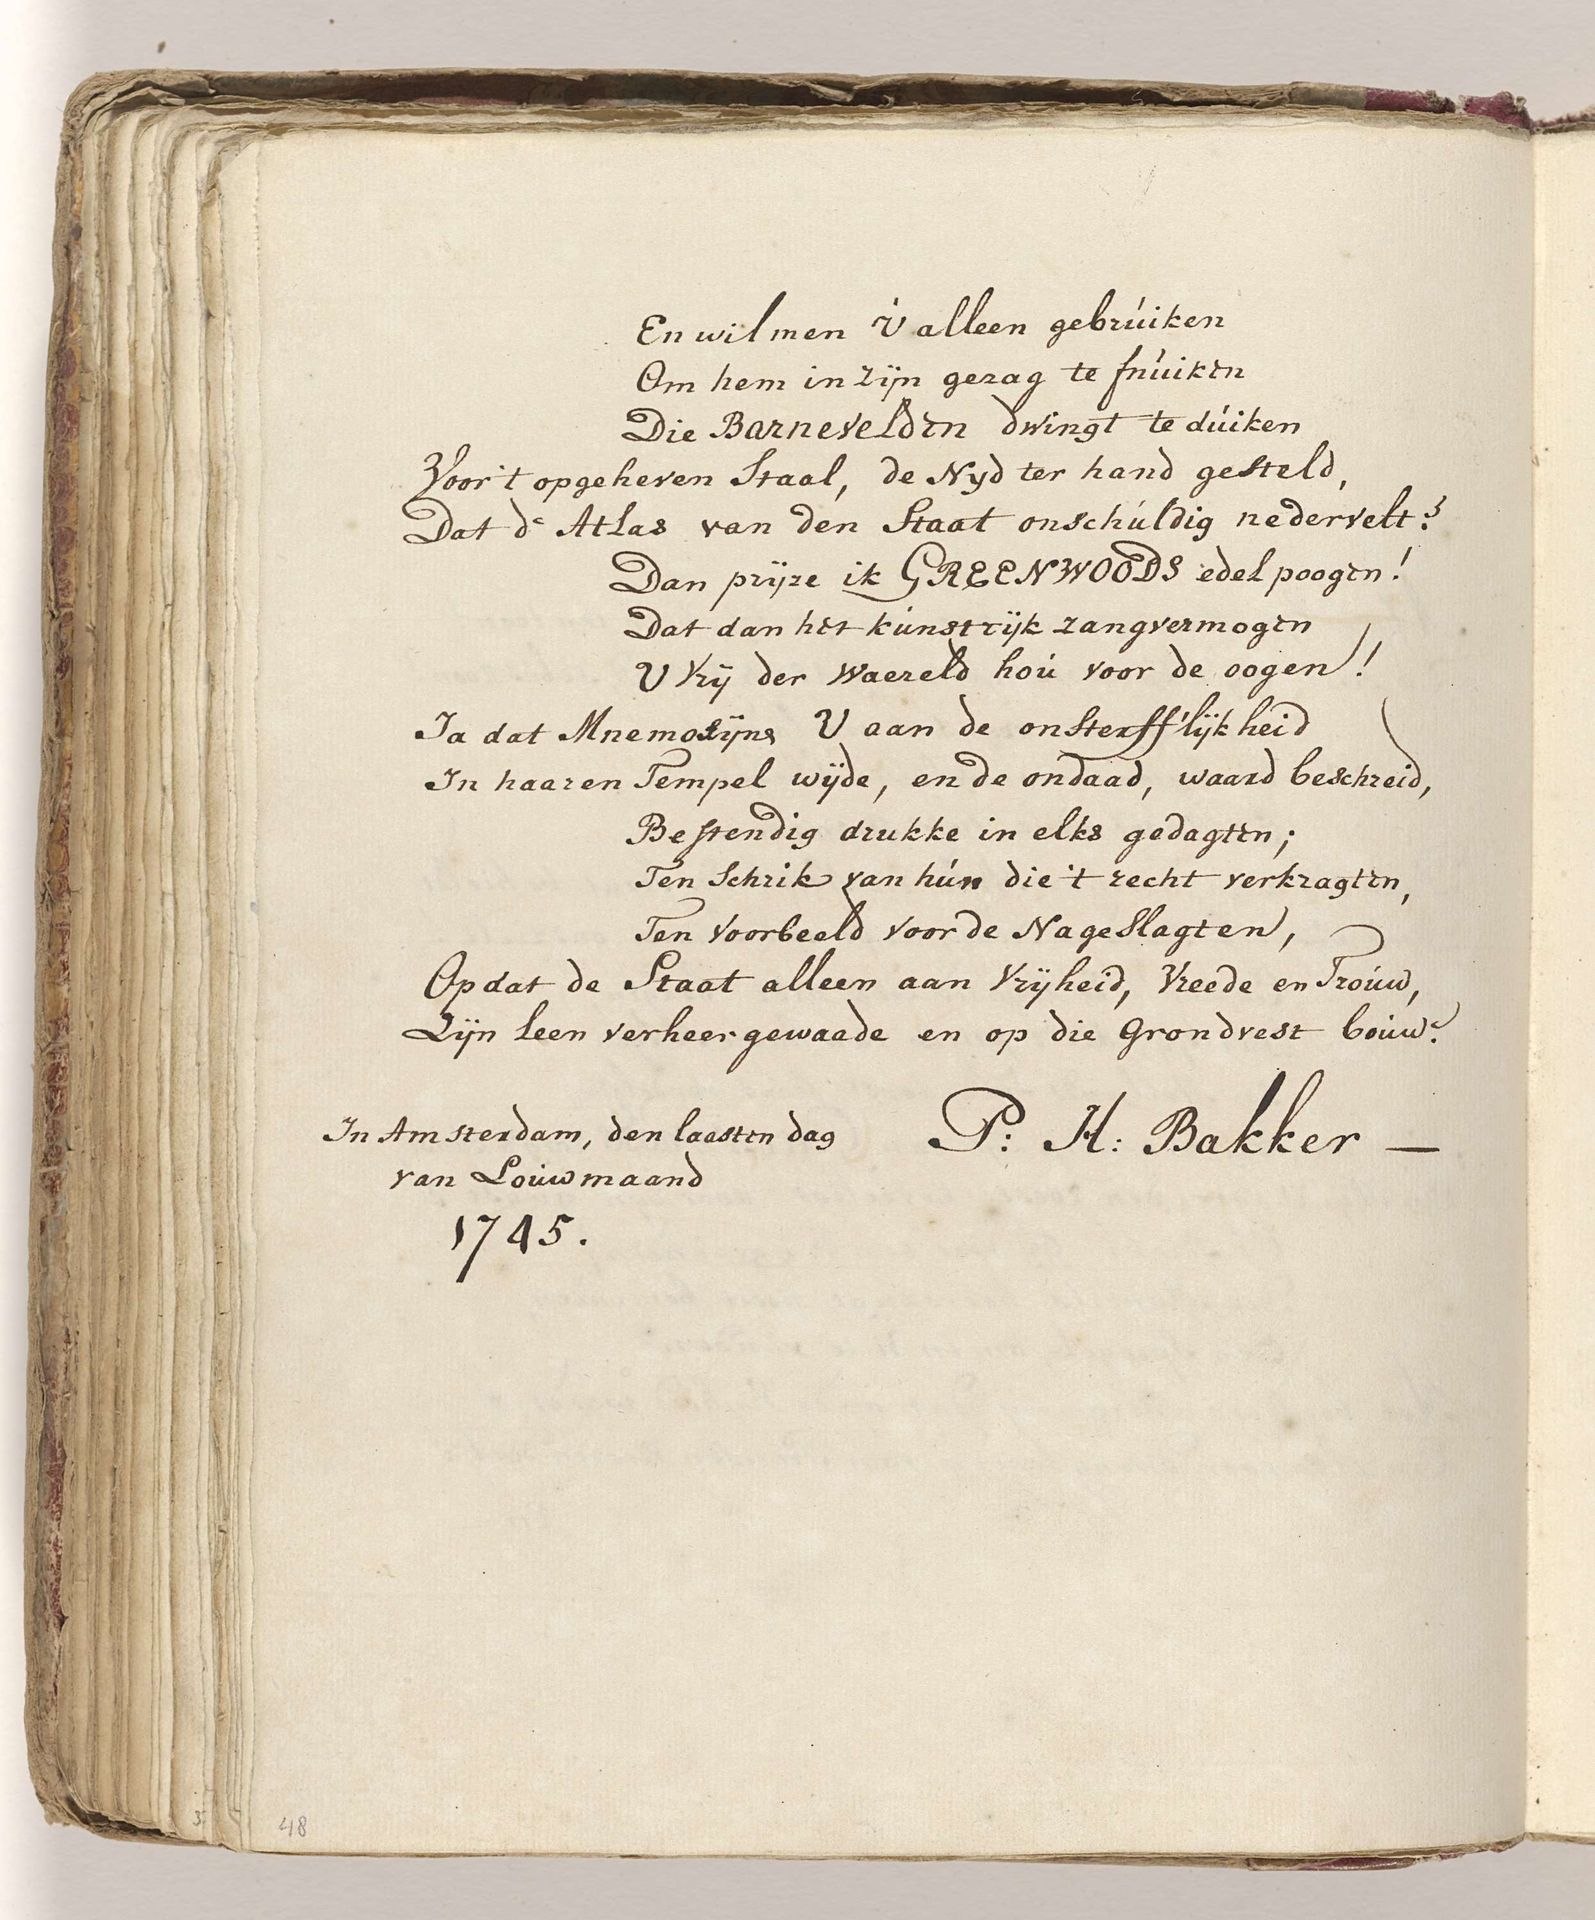 En wil men U alleen gebrúiken
Om hem in zijn gezag te fnúiken
Die Barnevelden dwingt te dúiken
Voor 't opgeheven Staal, de Nyd ter hand gesteld,
Dat de Atlas van den Staat onschúldig nedervelt?
Dan prijze ik GREENWOODS edel poogen!
Dat dan het kúnstrijk zangvermogen
U Vrij der Waereld hoú voor de oogen!
Ja dat Mnemosijne U aan de onsterff'lijkheid
In haaren Tempel wijde, en de ondaad, waard beschreid,
Bestendig drukke in elks gedagten;
Ten Schrik van hún die 't recht verkragten,
Ten Voorbeeld voor de Nageslagten,
Op dat de Staat alleen aan Vrijheid, Vreede en Troúw,
Zijn leen verheergewaade en op die Grondvest boúw.
P: H: Bakker —
In Amsterdam, den laasten dag
van Loúwmaand
1745.
48